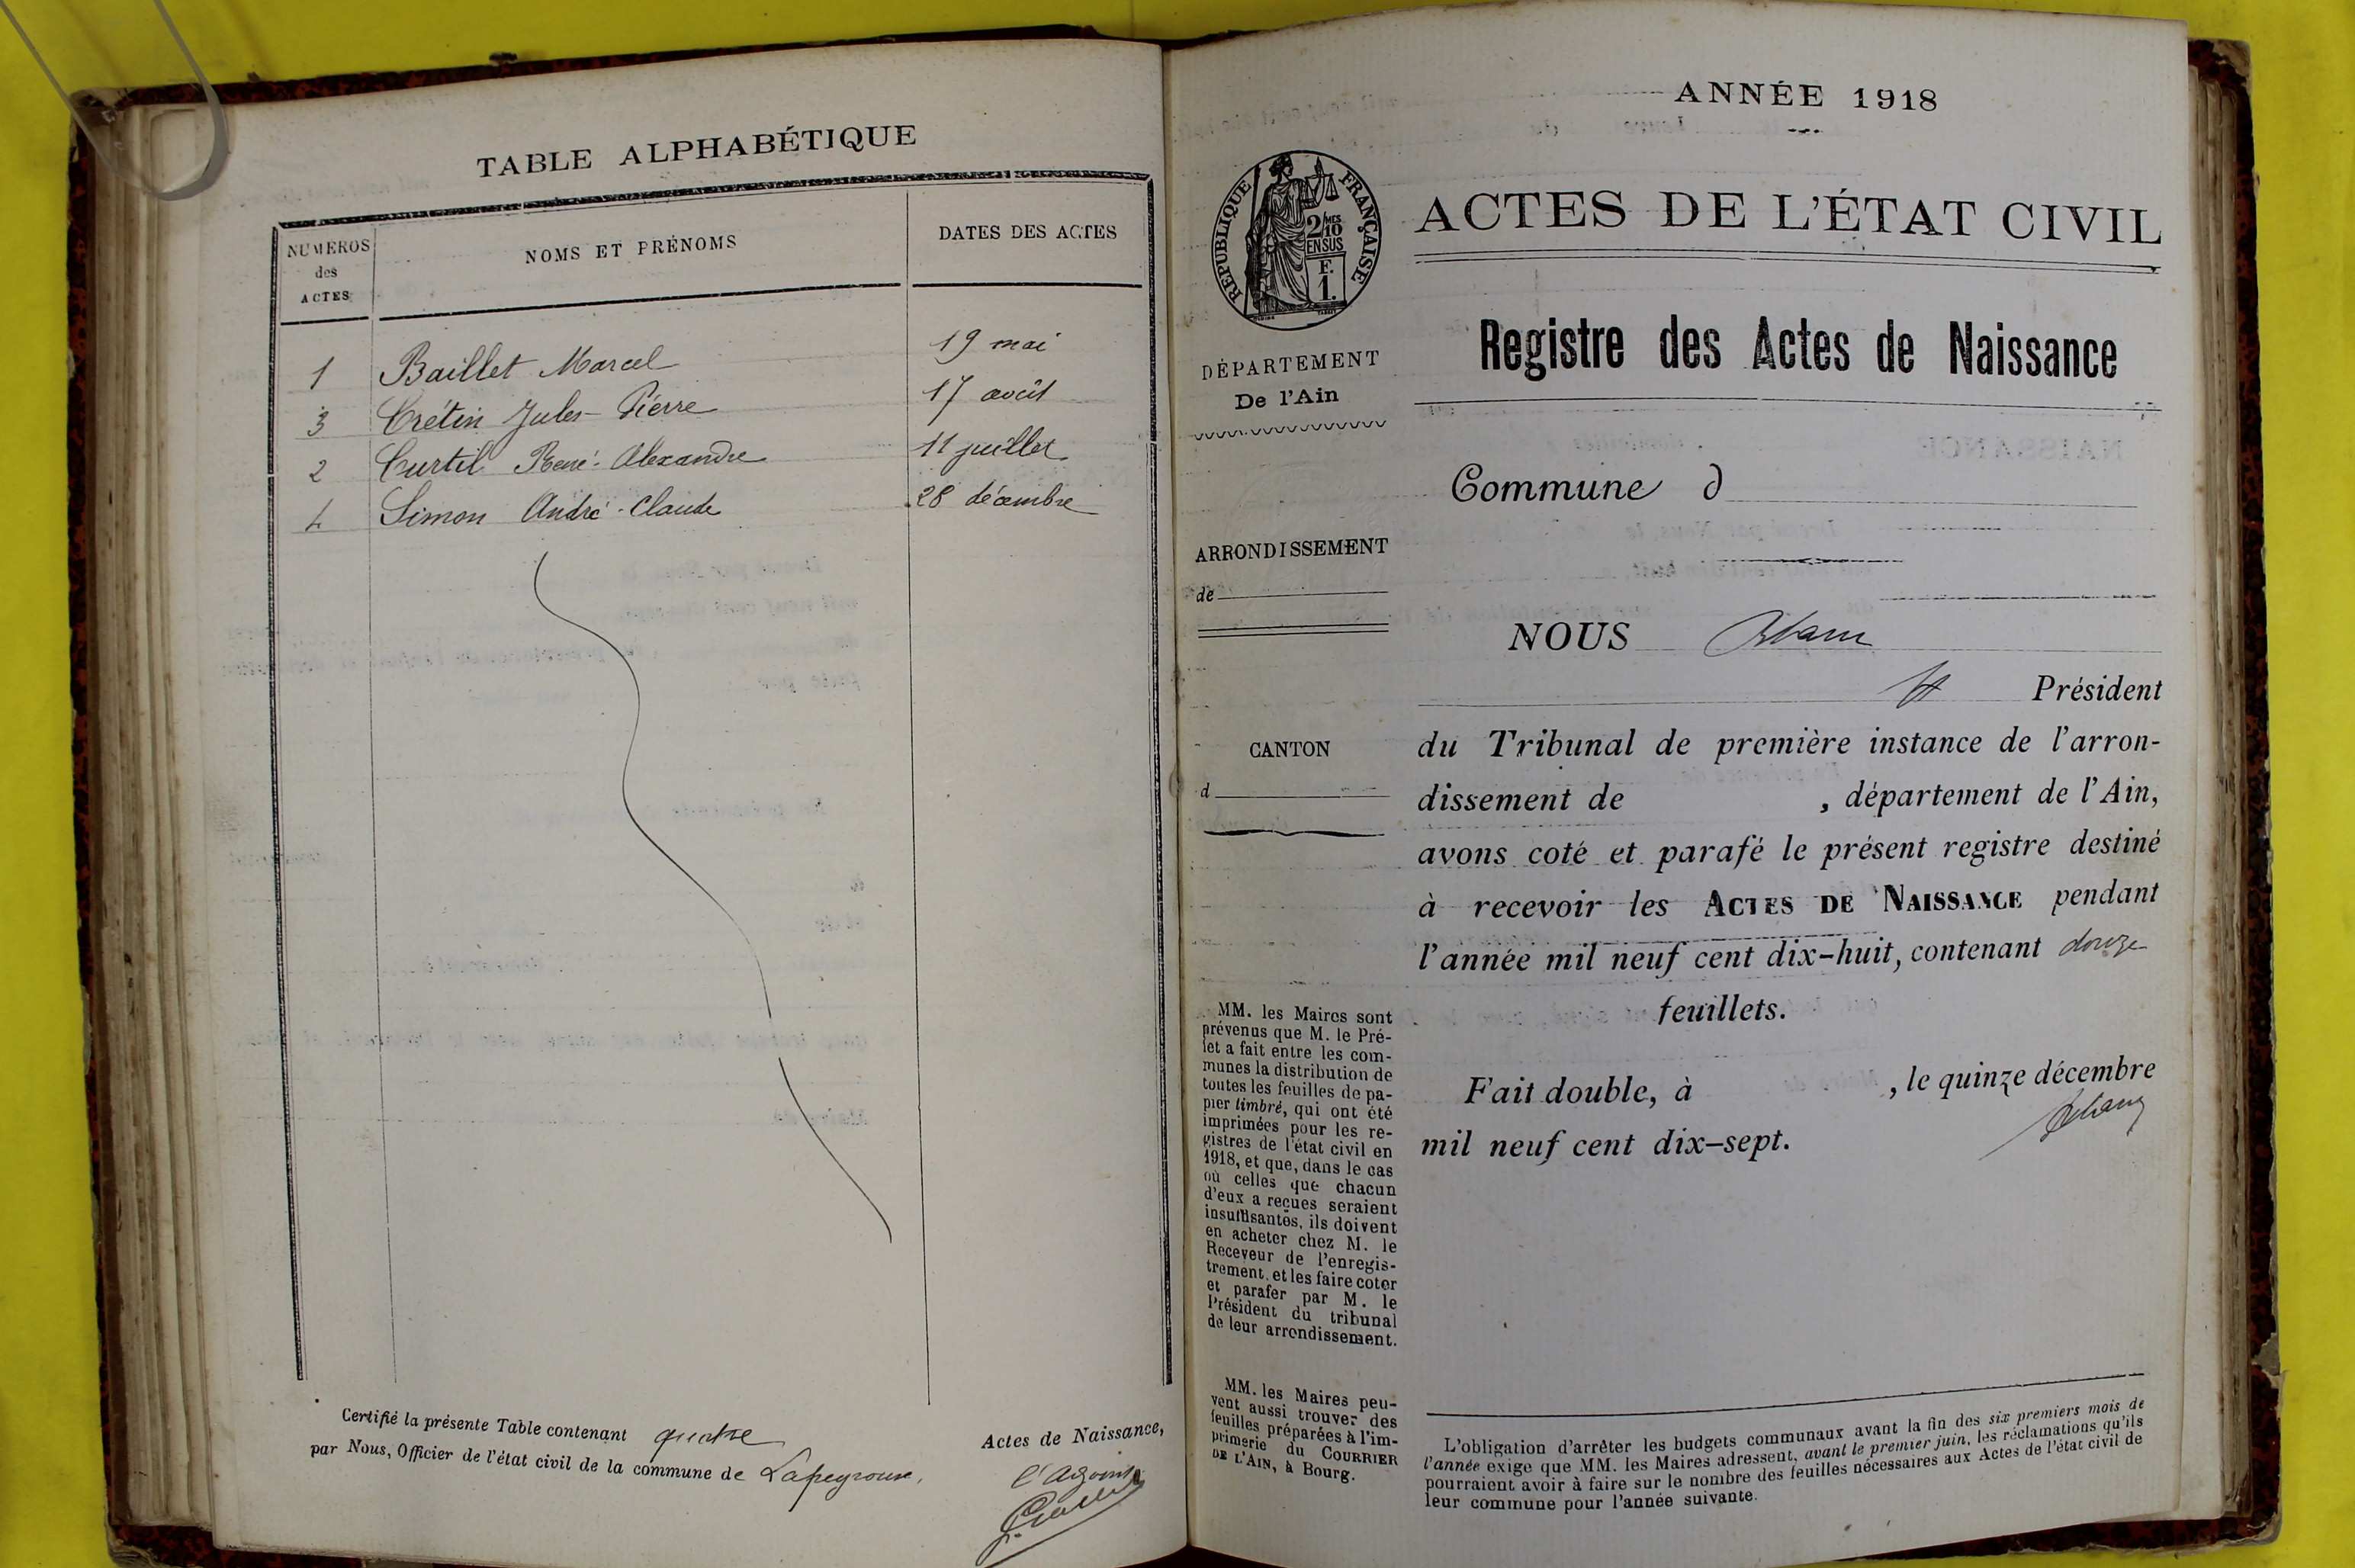 TABLE ALPHABÉTIQUE
NUMÉROS
des
ACTES
NOMS ET PRÉNOMS
DATES DES ACTES
1 Baillet Marcel 19 mai
3 Crétin Jules-Pierre 17 août
2 Curtil René-Alexandre 11 juillet
4 Simon André-Claude 28 décembre
Certifié la présente Table contenant quatre Actes de Naissance,
par Nous, Officier de l'état civil de la commune de Lapeyrouse,
l'adjoint
ANNÉE 1918
RÉPUBLIQUE FRANÇAISE
2/10 MES
EN SUS
F.
1.
ACTES DE L'ÉTAT CIVIL
Registre des Actes de Naissance
DÉPARTEMENT
De l'Ain
Commune d
ARRONDISSEMENT
de
NOUS
Président
CANTON
d
du Tribunal de première instance de l'arron-
dissement de , département de l'Ain,
avons coté et parafé le présent registre destiné
à recevoir les ACTES DE NAISSANCE pendant
l'année mil neuf cent dix-huit, contenant douze
feuillets.
Fait double, à , le quinze décembre
mil neuf cent dix-sept.
MM. les Maires sont
prévenus que M. le Pré-
fet a fait entre les com-
munes la distribution de
toutes les feuilles de pa-
pier timbré, qui ont été
imprimées pour les re-
gistres de l'état civil en
1918, et que, dans le cas
où celles que chacun
d'eux a reçues seraient
insuffisantes, ils doivent
en acheter chez M. le
Receveur de l'enregis-
trement, et les faire coter
et parafer par M. le
Président du tribunal
de leur arrondissement.
MM. les Maires peu-
vent aussi trouver des
feuilles préparées à l'im-
primerie du COURRIER
DE L'AIN, à Bourg.
L'obligation d'arrêter les budgets communaux avant la fin des six premiers mois de
l'année exige que MM. les Maires adressent, avant le premier juin, les réclamations qu'ils
pourraient avoir à faire sur le nombre des feuilles nécessaires aux Actes de l'état civil de
leur commune pour l'année suivante.